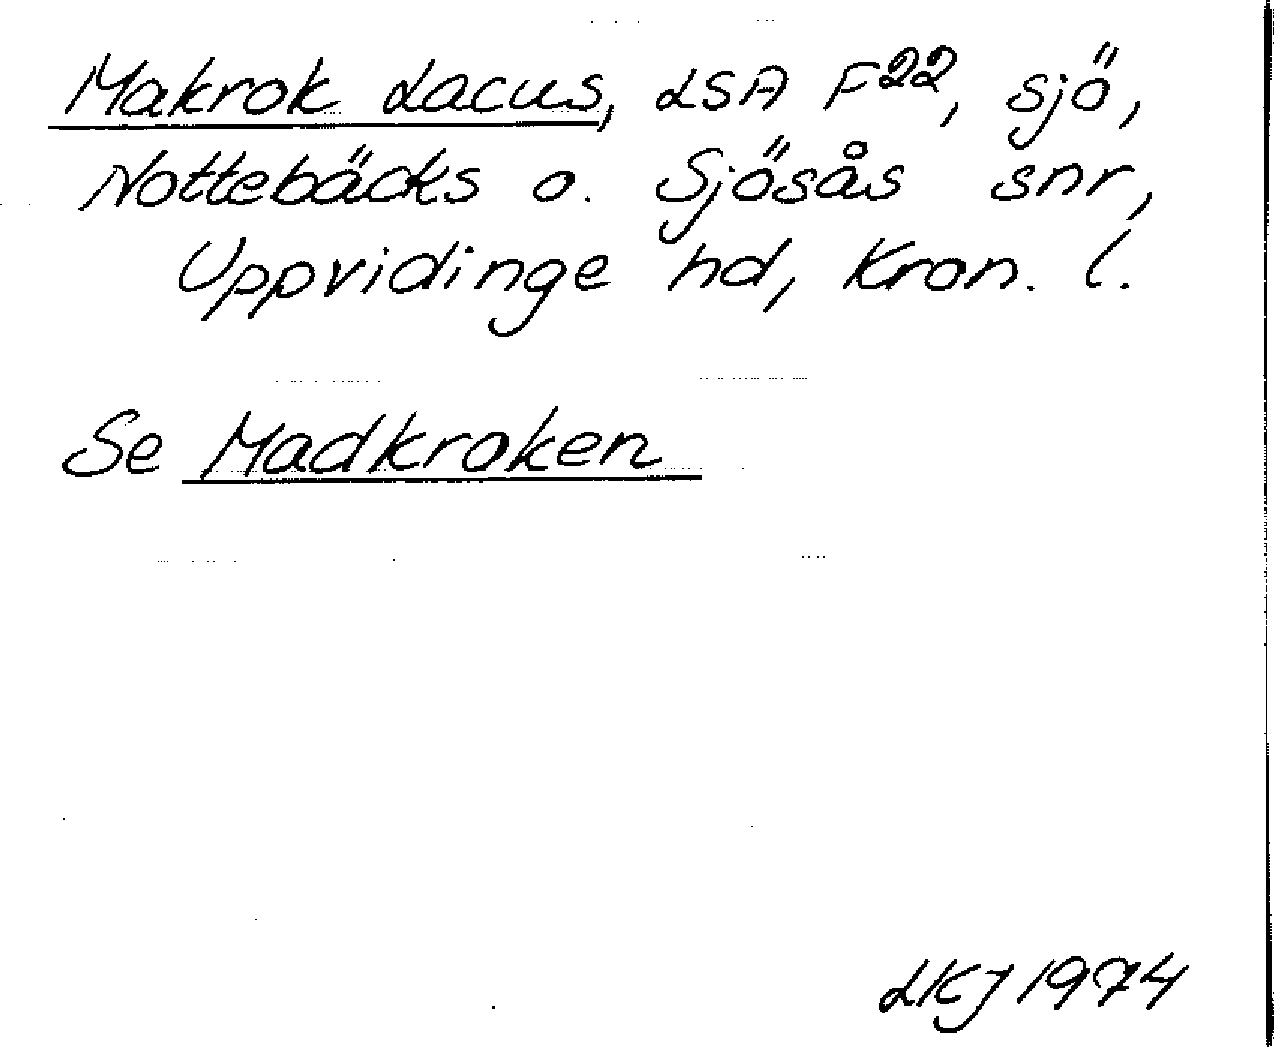 Makrok Lacus, LSA F22, sjö,
Nottebäcks o. Sjösås snr,
Uppvidinge hd, Kron. l.
Se Madkroken
LKJ 1974